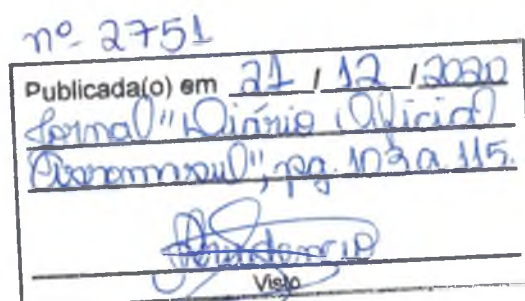 nº 2751
Publicada(o) em 21 / 12 / 2020
Jornal "Diário Oficial
Assomasul", pg. 103 a 115.
Visto